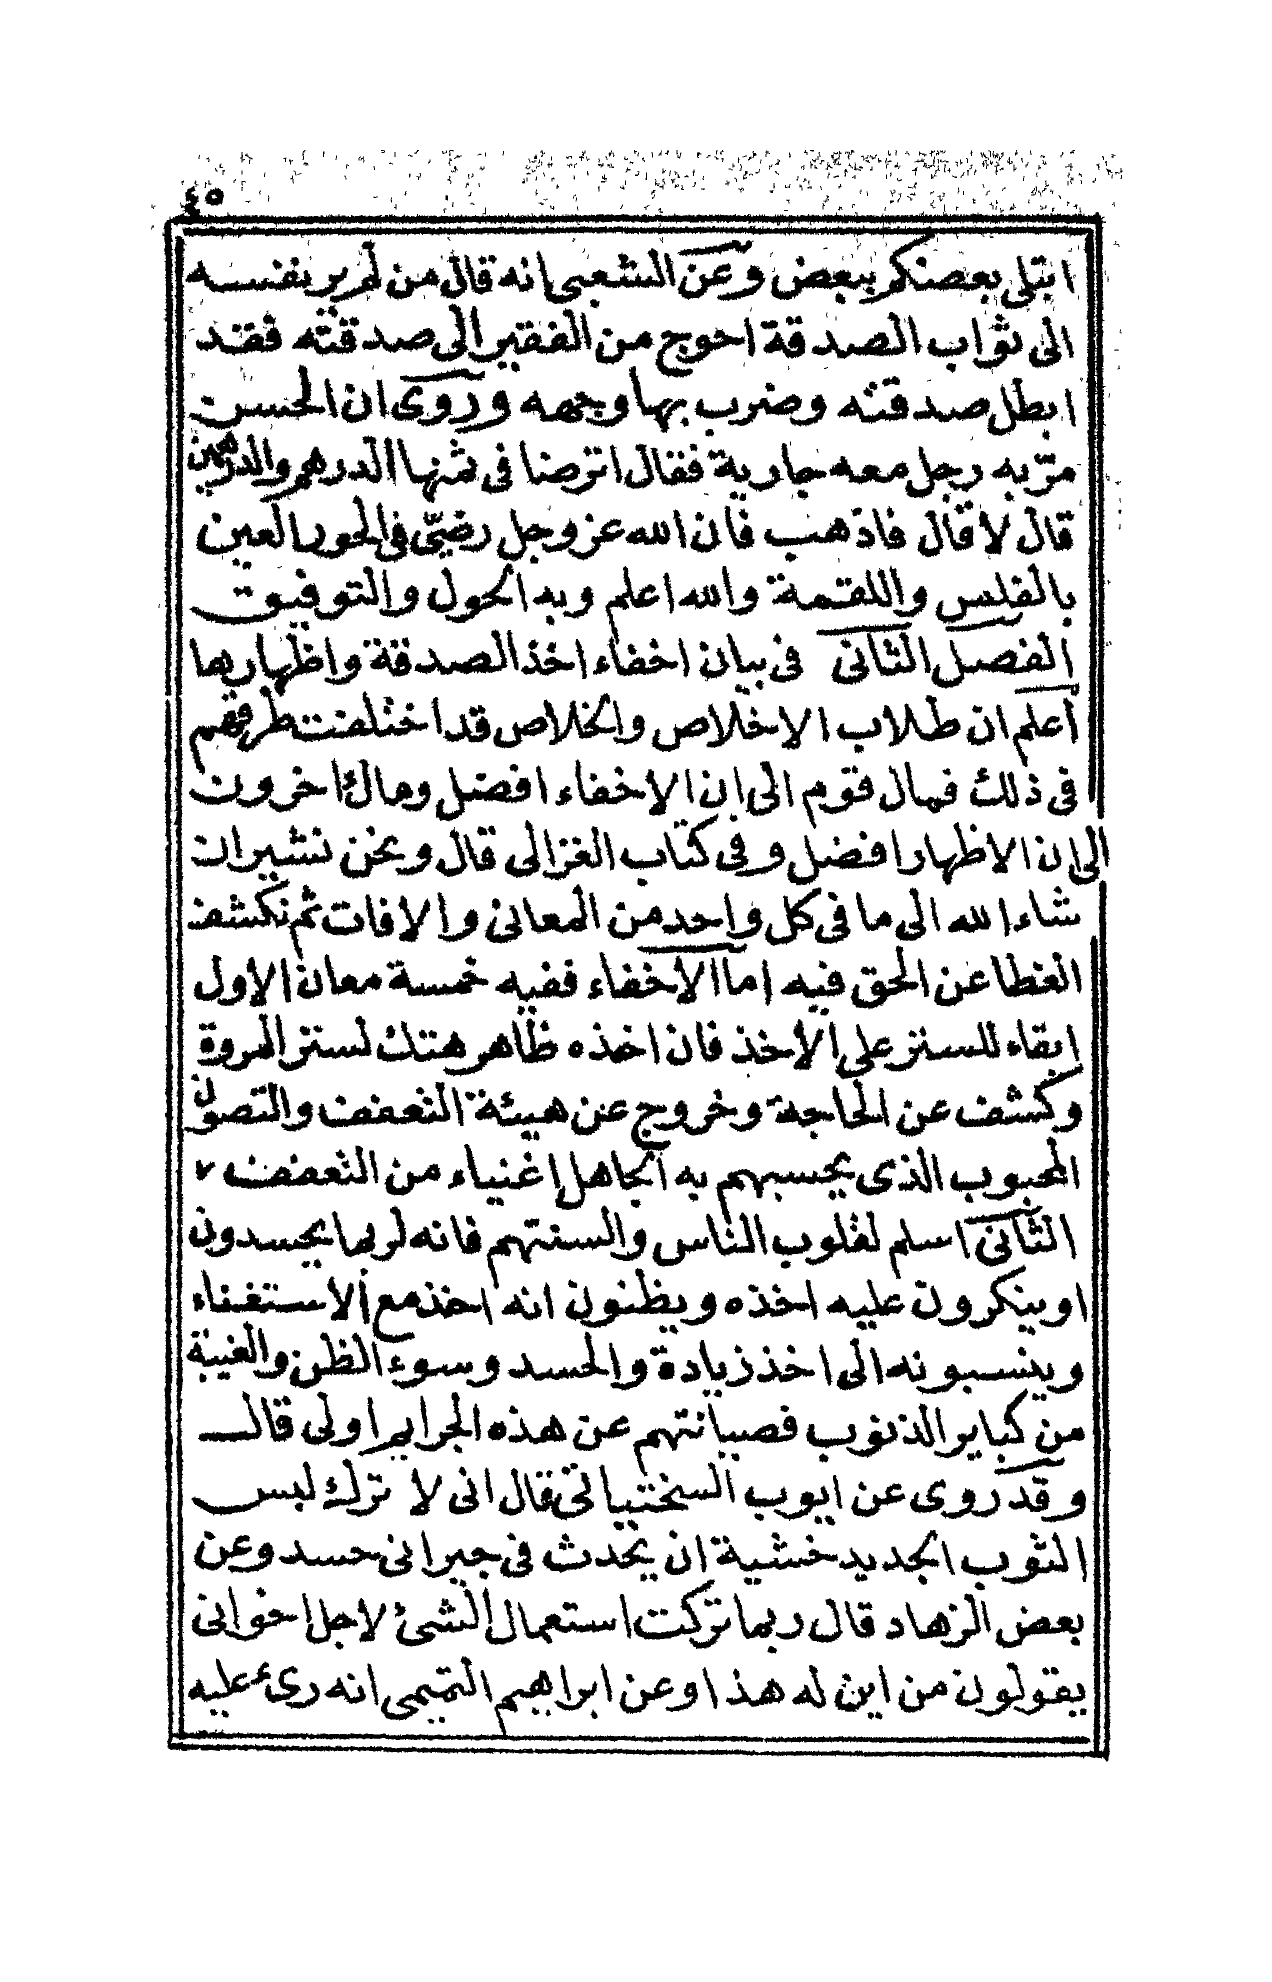 ٤٥
ابتلى بعضكم ببعض وعن الشعبى انه قال من لم ير بنفسه
الى ثواب الصدقة احوج من الفقير الى صدقته فقد
ابطل صدقته وضرب بها وجهه وروى ان الحسن
مرّ به رجل معه جارية فقال اترضا فى ثمنها الدرهم والدرهمين
قال لا قال فاذهب فان الله عز وجل رضىّ فى الحور العين
بالفلس واللقمة والله اعلم وبه الحول والتوفيق
الفصل الثانى فى بيان اخفاء اخذ الصدقة واظهارها
أعلم ان طلاب الاخلاص والخلاص قد اختلفت طرقهم
فى ذلك فمال قوم الى ان الاخفاء افضل ومال اخرون
الى ان الاظهار افضل وفى كتاب الغزالى قال ونحن نشير ان
شاء الله الى ما فى كل واحد من المعانى والافات ثم نكشف
الغطا عن الحق فيه اما الاخفاء ففيه خمسة معان الاول
ابقاء للستر على الاخذ فان اخذه ظاهر هتك لستر المروة
وكشف عن الحاجة وخروج عن هيئة التعفف والتصون
المحبوب الذى يحسبهم به الجاهل إغنياء من التعفف ٧
الثانى اسلم لقلوب الناس والسنتهم فانه لربما يحسدون
او ينكرون عليه اخذه ويظنون انه اخذ مع ألاستغناء
وينسبونه الى اخذ زيادة والحسد وسوء الظن والغيبة
من كباير الذنوب فصيانتهم عن هذه الجراير اولى قال
وقد روى عن ايوب السختيانى قال انى لا ترك لبس
الثوب الجديد خشية ان يحدث فى جيرانى حسد وعن
بعض الزهاد قال ربما تركت استعمال الشئ لاجل اخوانى
يقولون من اين له هذا وعن ابراهيم التيمى انه رئ عليه